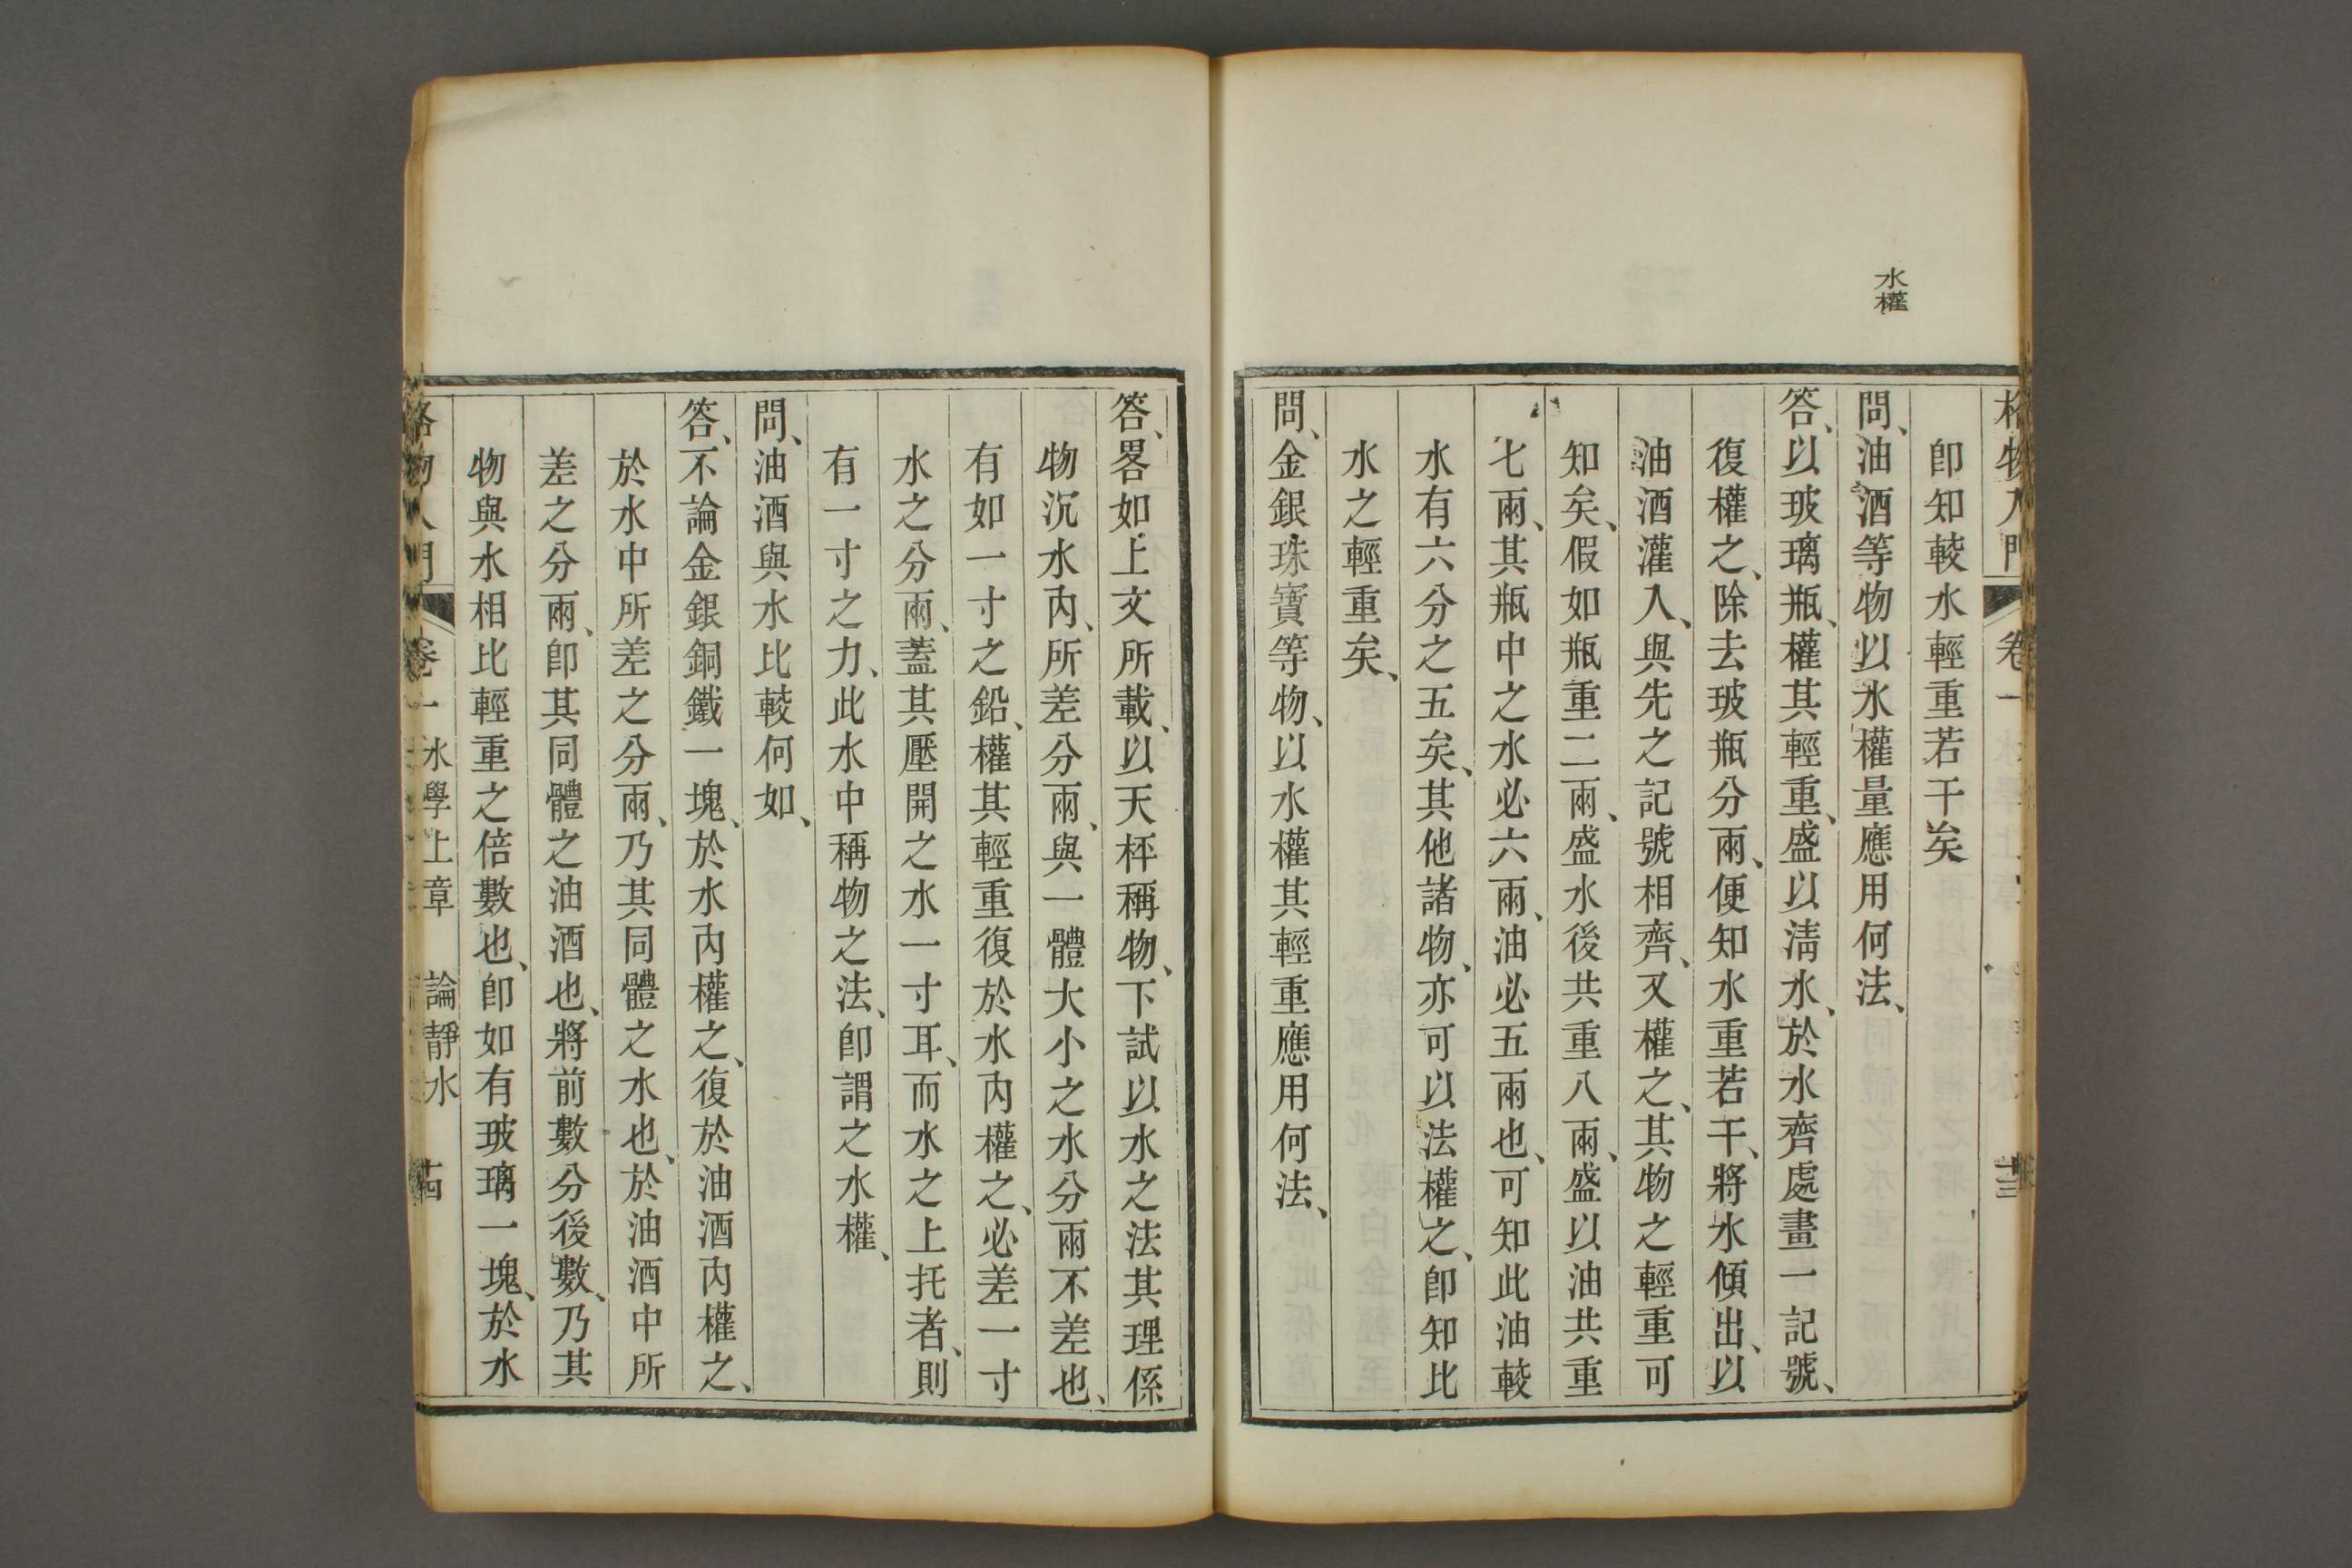 水權
格物入門 卷一 十三
卽知較水輕重若干矣
問、油酒等物以水權量應用何法、
答、以玻璃瓶、權其輕重、盛以淸水、於水齊處畫一記號、
復權之、除去玻瓶分兩、便知水重若干、將水傾出、以
油酒灌入、與先之記號相齊、又權之、其物之輕重可
知矣、假如瓶重二兩、盛水後共重八兩、盛以油共重
七兩、其瓶中之水必六兩、油必五兩也、可知此油較
水有六分之五矣、其他諸物、亦可以法權之、卽知比
水之輕重矣、
問、金銀珠寶等物、以水權其輕重應用何法、
答、畧如上文所載、以天枰稱物、下試以水之法其理係
物沉水內、所差分兩、與一體大小之水分兩不差也、
有如一寸之鉛、權其輕重復於水內權之、必差一寸
水之分兩、蓋其壓開之水一寸耳、而水之上托者、則
有一寸之力、此水中稱物之法、卽謂之水權、
問、油酒與水比較何如、
答、不論金銀銅鐵一塊、於水內權之、復於油酒內權之、
於水中所差之分兩、乃其同體之水也、於油酒中所
差之分兩、卽其同體之油酒也、將前數分後數、乃其
物與水相比輕重之倍數也、卽如有玻璃一塊、於水
格物入門 卷一 水學上章 論靜水 十四